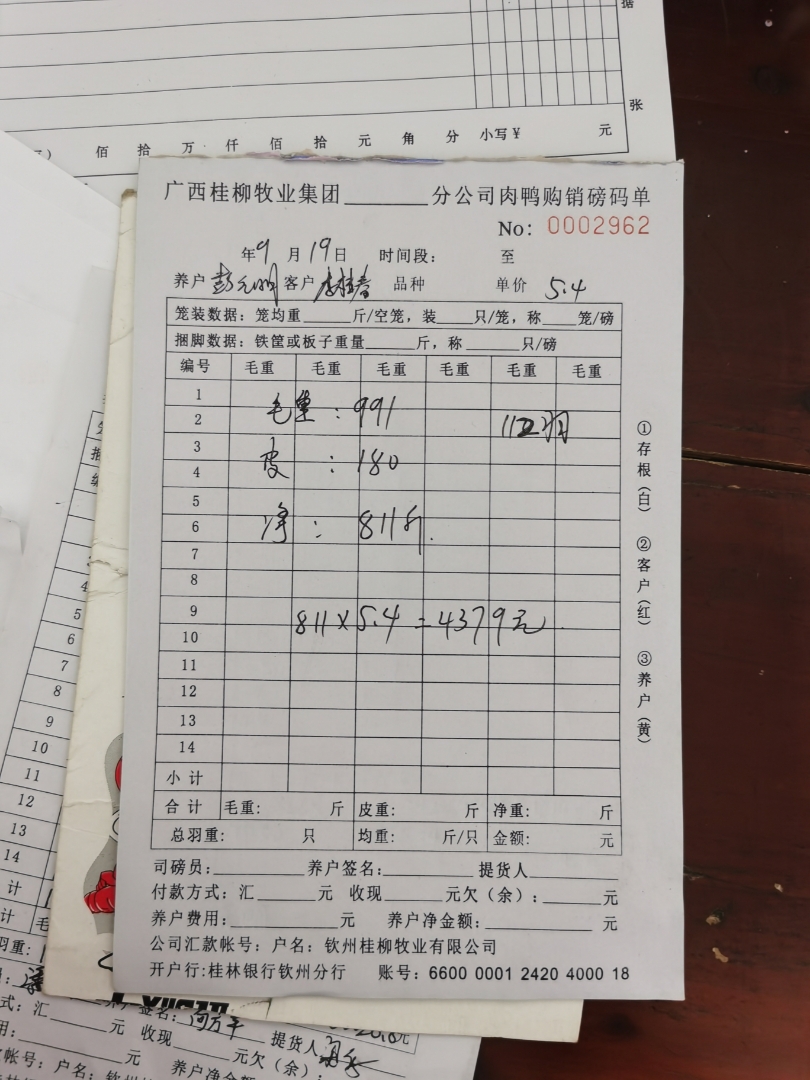 据
张
佰 拾 万 仟 佰 拾 元 角 分 小写¥ 元
广西桂柳牧业集团________分公司肉鸭购销磅码单
No: 0002962
年9月19日 时间段: 至
养户 客户 李桂春 品种 单价 5.4
笼装数据: 笼均重_____斤/空笼, 装___只/笼, 称___笼/磅
捆脚数据: 铁筐或板子重量_____斤, 称_____只/磅
编号 毛重 毛重 毛重 毛重 毛重 毛重
1
毛重: 991
2 112羽
3
皮: 180
4
5
净: 811斤.
6
7
8
9
811×5.4=4379元
10
11
12
13
14
小计
合计 毛重: 斤 皮重: 斤 净重: 斤
总羽重: 只 均重: 斤/只 金额: 元
司磅员:_________养户签名:_________提货人_________
付款方式: 汇______元 收现______元欠(余):______元
养户费用:___________元 养户净金额:___________元
公司汇款帐号: 户名: 钦州桂柳牧业有限公司
开户行:桂林银行钦州分行 账号: 6600 0001 2420 4000 18
①存根(白) ②客户(红) ③养户(黄)
4
5
6
7
8
9
10
11
12
13
14
计
计 毛
羽重:
式: 汇____元 收现____元欠(余):
提货人
用: 元 养户净金额
帐号: 户名: 钦州